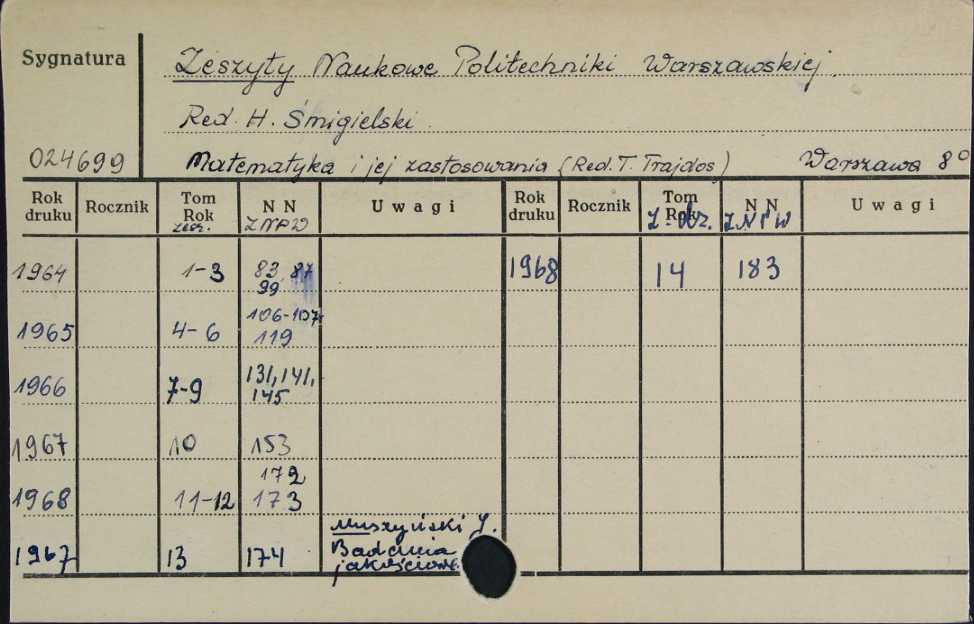 Sygnatura
Zeszyty Naukowe Politechniki Warszawskiej.
Red. H. Śmigielski.
024699
Matematyka i jej zastosowania (Red. T. Trajdos) Warszawa 8°
Rok druku Rocznik Tom Rok zesz. N N ZNPW Uwagi Rok druku Rocznik Tom Rok N N ZNPW Uwagi
1964 1-3 83, 87 99 1968 14 183
1965 4-6 106-107, 119
1966 7-9 131, 141, 145
1967 10 153
1968 11-12 172 173
1967 13 174 Muszyński J.
Badania
jakościowe